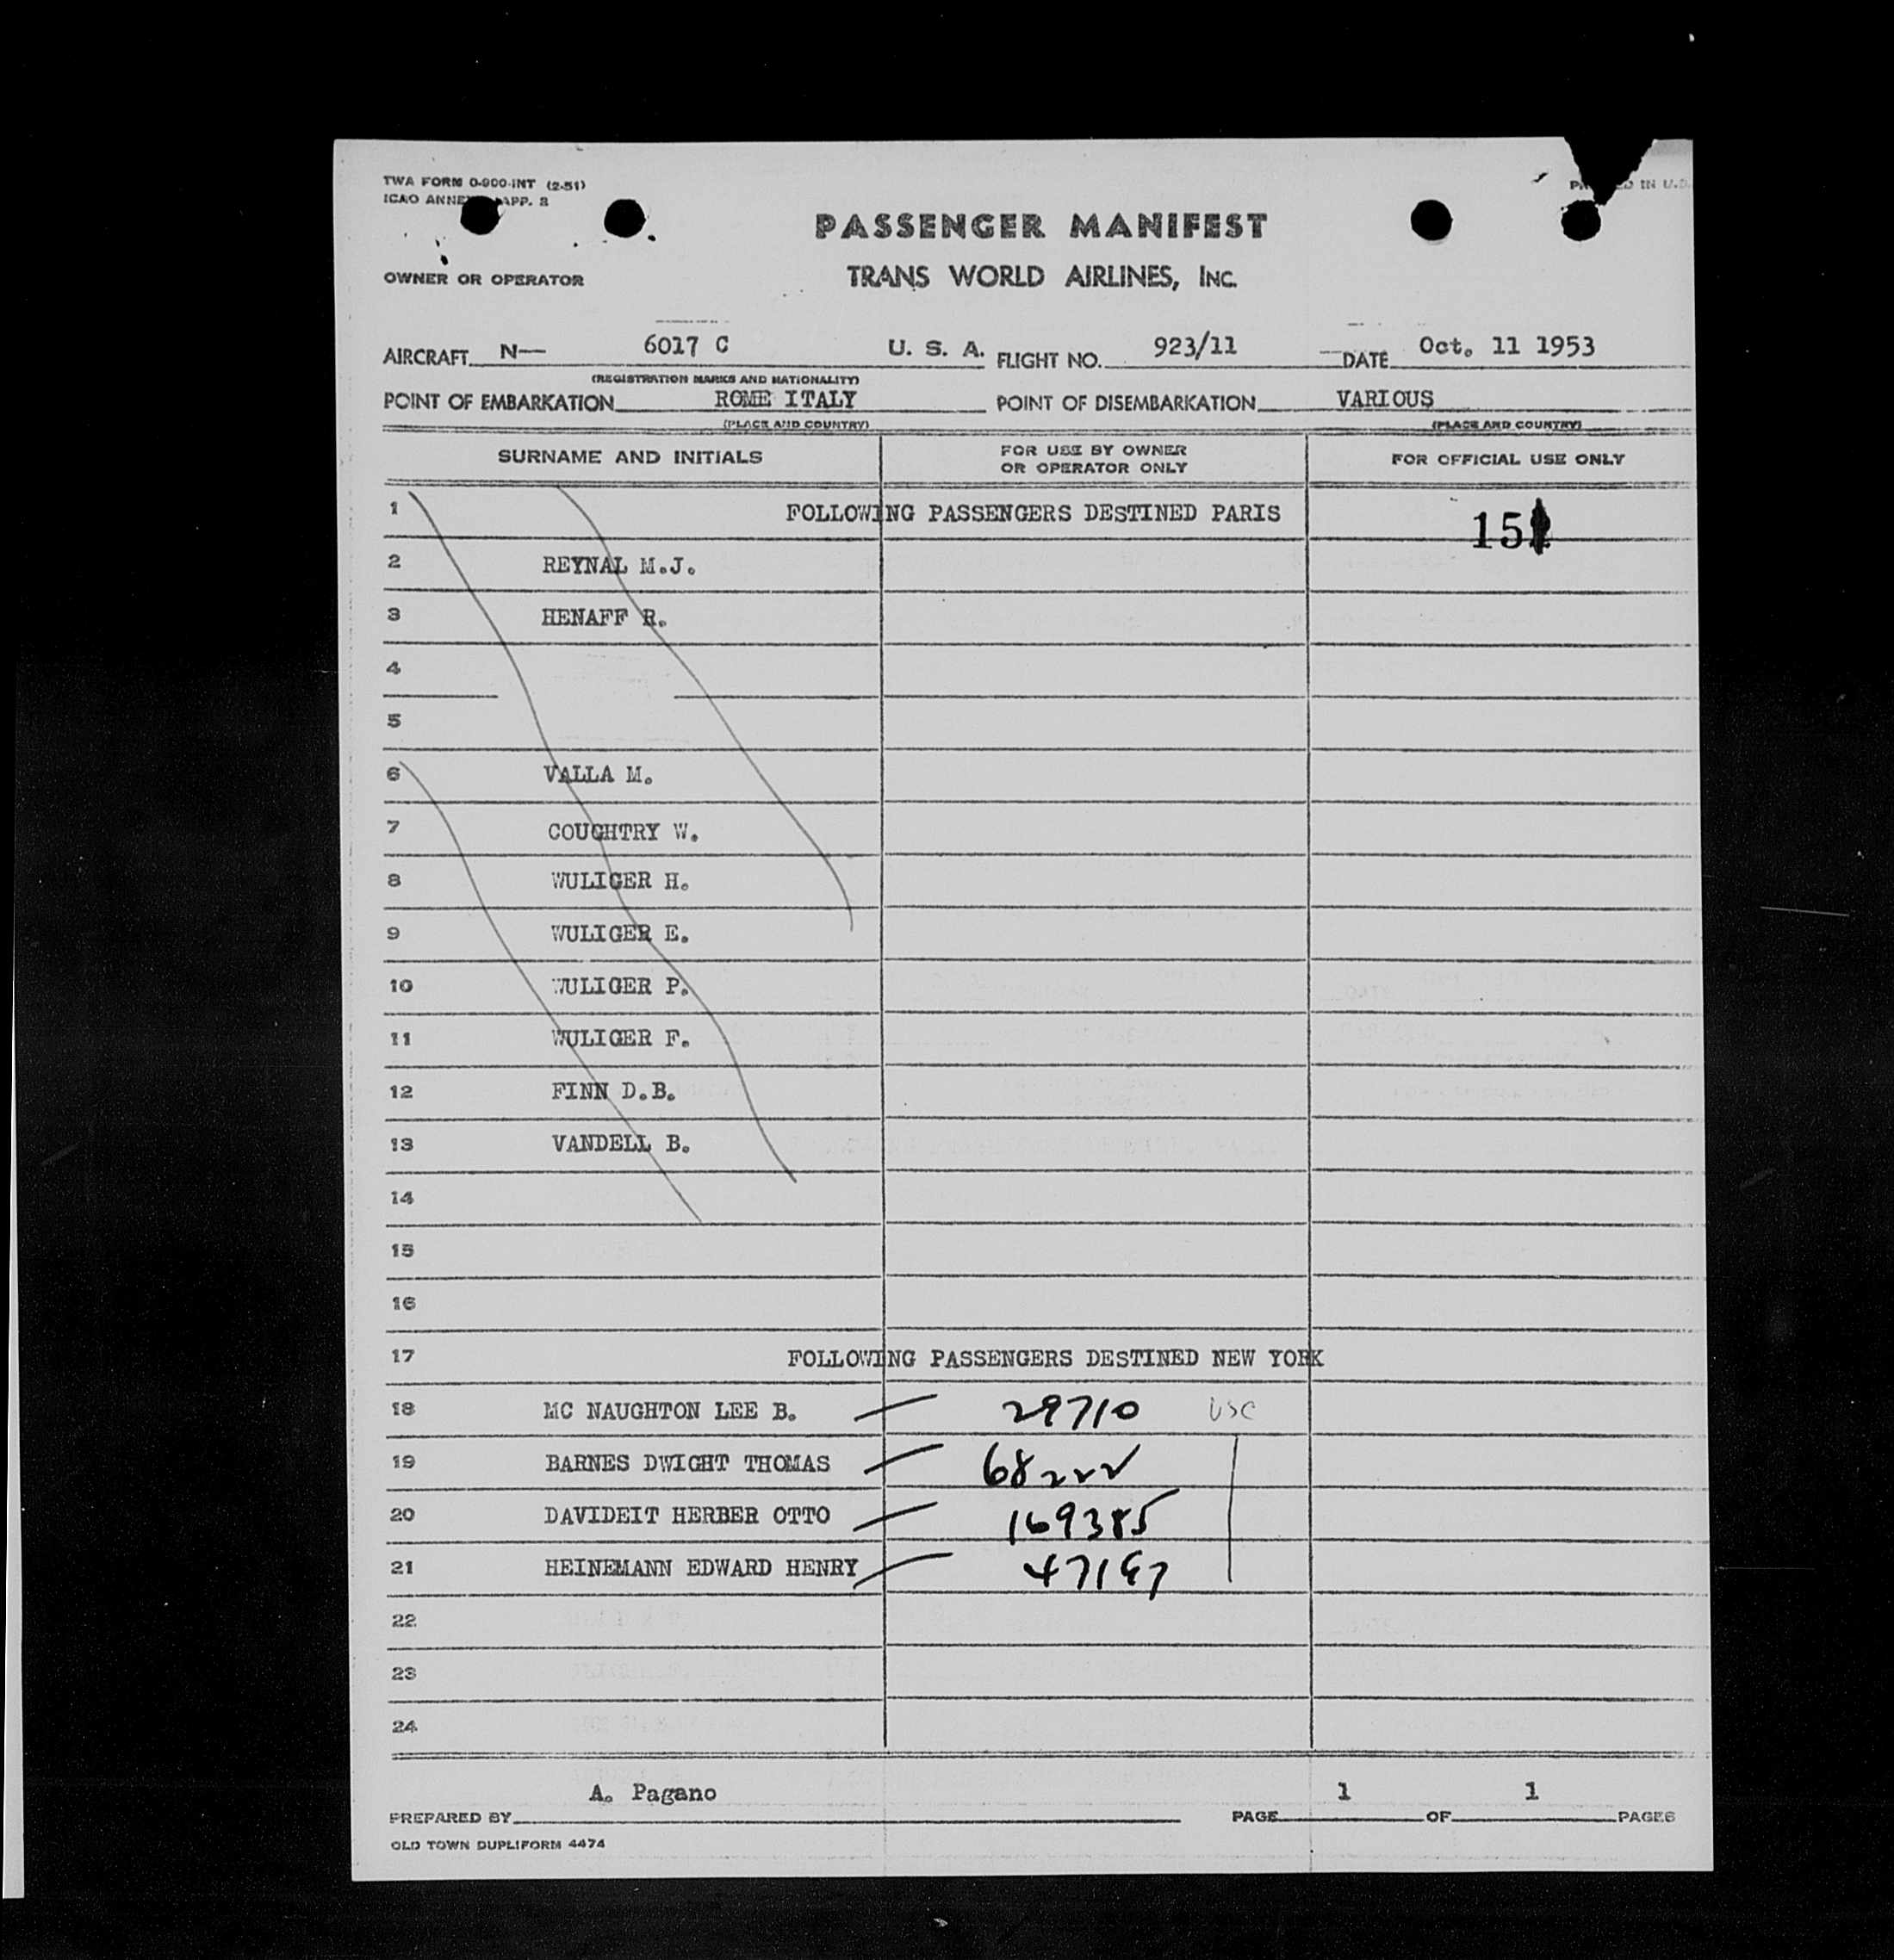 TWA FORM 0-900-INT (2-51)
ICAO ANNEX APP. 2
IN U.S.
PASSENGER MANIFEST
OWNER OR OPERATOR TRANS WORLD AIRLINES, INC.
AIRCRAFT N— 6017 C U. S. A. FLIGHT NO. 923/11 DATE Oct. 11 1953
(REGISTRATION MARKS AND NATIONALITY)
POINT OF EMBARKATION ROME ITALY POINT OF DISEMBARKATION VARIOUS
(PLACE AND COUNTRY) (PLACE AND COUNTRY)
SURNAME AND INITIALS FOR USE BY OWNER OR OPERATOR ONLY FOR OFFICIAL USE ONLY
1 FOLLOWING PASSENGERS DESTINED PARIS 15
2 REYNAL M.J.
3 HENAFF R.
4
5
6 VALLA M.
7 COUGHTRY W.
8 WULIGER H.
9 WULIGER E.
10 WULIGER P.
11 WULIGER F.
12 FINN D.B.
13 VANDELL B.
14
15
16
17 FOLLOWING PASSENGERS DESTINED NEW YORK
18 MC NAUGHTON LEE B. — 29710 USC
19 BARNES DWIGHT THOMAS — 68222
20 DAVIDEIT HERBER OTTO — 169385
21 HEINEMANN EDWARD HENRY —
22
23
24
PREPARED BY A. Pagano PAGE 1 OF 1 PAGES
OLD TOWN DUPLIFORM 4474